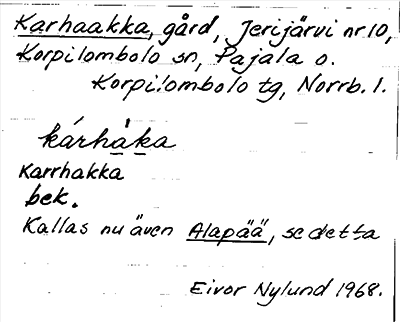 Karhaakka, gård, Jerijärvi nr 10,
Korpilombolo sn, Pajala o.
Korpilombolo tg, Norrb. l.
kárhàka
Karrhakka
bek.
Kallas nu även Alapää, se detta
Eivor Nylund 1968.